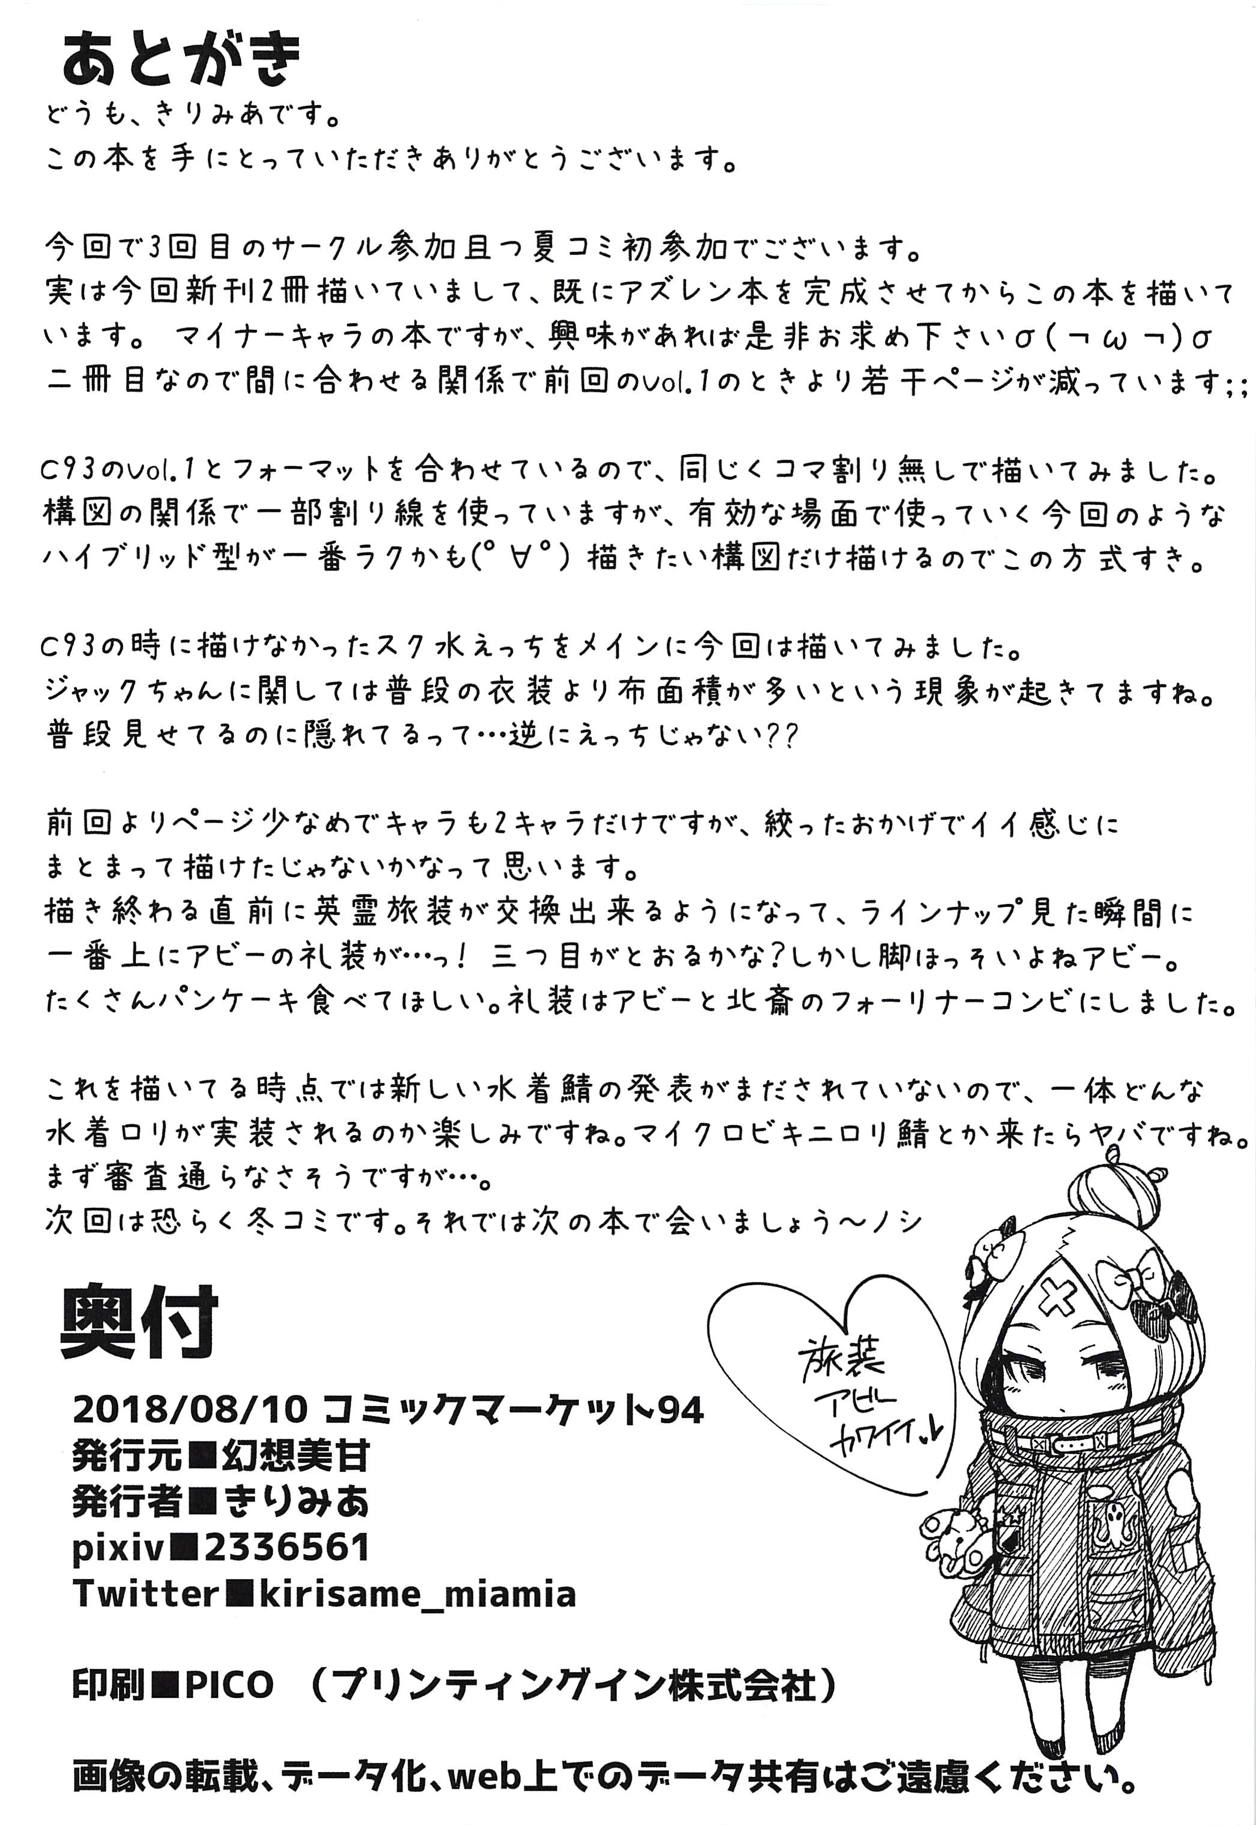 あとがき
どうも、きりみあです。
この本を手にとっていただきありがとうございます。
今回で3回目のサークル参加且つ夏コミ初参加でございます。
実は今回新刊2冊描いていまして、既にアズレン本を完成させてからこの本を描いて
います。 マイナーキャラの本ですが、興味があれば是非お求め下さいσ(¬ω¬)σ
二冊目なので間に合わせる関係で前回のvol.1のときより若干ページが減っています;;
C93のvol.1とフォーマットを合わせているので、同じくコマ割り無しで描いてみました。
構図の関係で一部割り線を使っていますが、有効な場面で使っていく今回のような
ハイブリッド型が一番ラクかも(°∀°) 描きたい構図だけ描けるのでこの方式すき。
C93の時に描けなかったスク水えっちをメインに今回は描いてみました。
ジャックちゃんに関しては普段の衣装より布面積が多いという現象が起きてますね。
普段見せてるのに隠れてるって…逆にえっちじゃない??
前回よりページ少なめでキャラも2キャラだけですが、絞ったおかげでイイ感じに
まとまって描けたじゃないかなって思います。
描き終わる直前に英霊旅装が交換出来るようになって、ラインナップ見た瞬間に
一番上にアビーの礼装が…っ! 三つ目がとおるかな?しかし脚ほっそいよねアビー。
たくさんパンケーキ食べてほしい。礼装はアビーと北斎のフォーリナーコンビにしました。
これを描いてる時点では新しい水着鯖の発表がまだされていないので、一体どんな
水着ロリが実装されるのか楽しみですね。マイクロビキニロリ鯖とか来たらヤバですね。
まず審査通らなさそうですが…。
次回は恐らく冬コミです。それでは次の本で会いましょう～ノシ
奥付
2018/08/10 コミックマーケット94
発行元■幻想美甘
発行者■きりみあ
pixiv■2336561
Twitter■kirisame_miamia
印刷■PICO （プリンティングイン株式会社）
画像の転載、データ化、web上でのデータ共有はご遠慮ください。
旅装
アビー
カワイイ♥